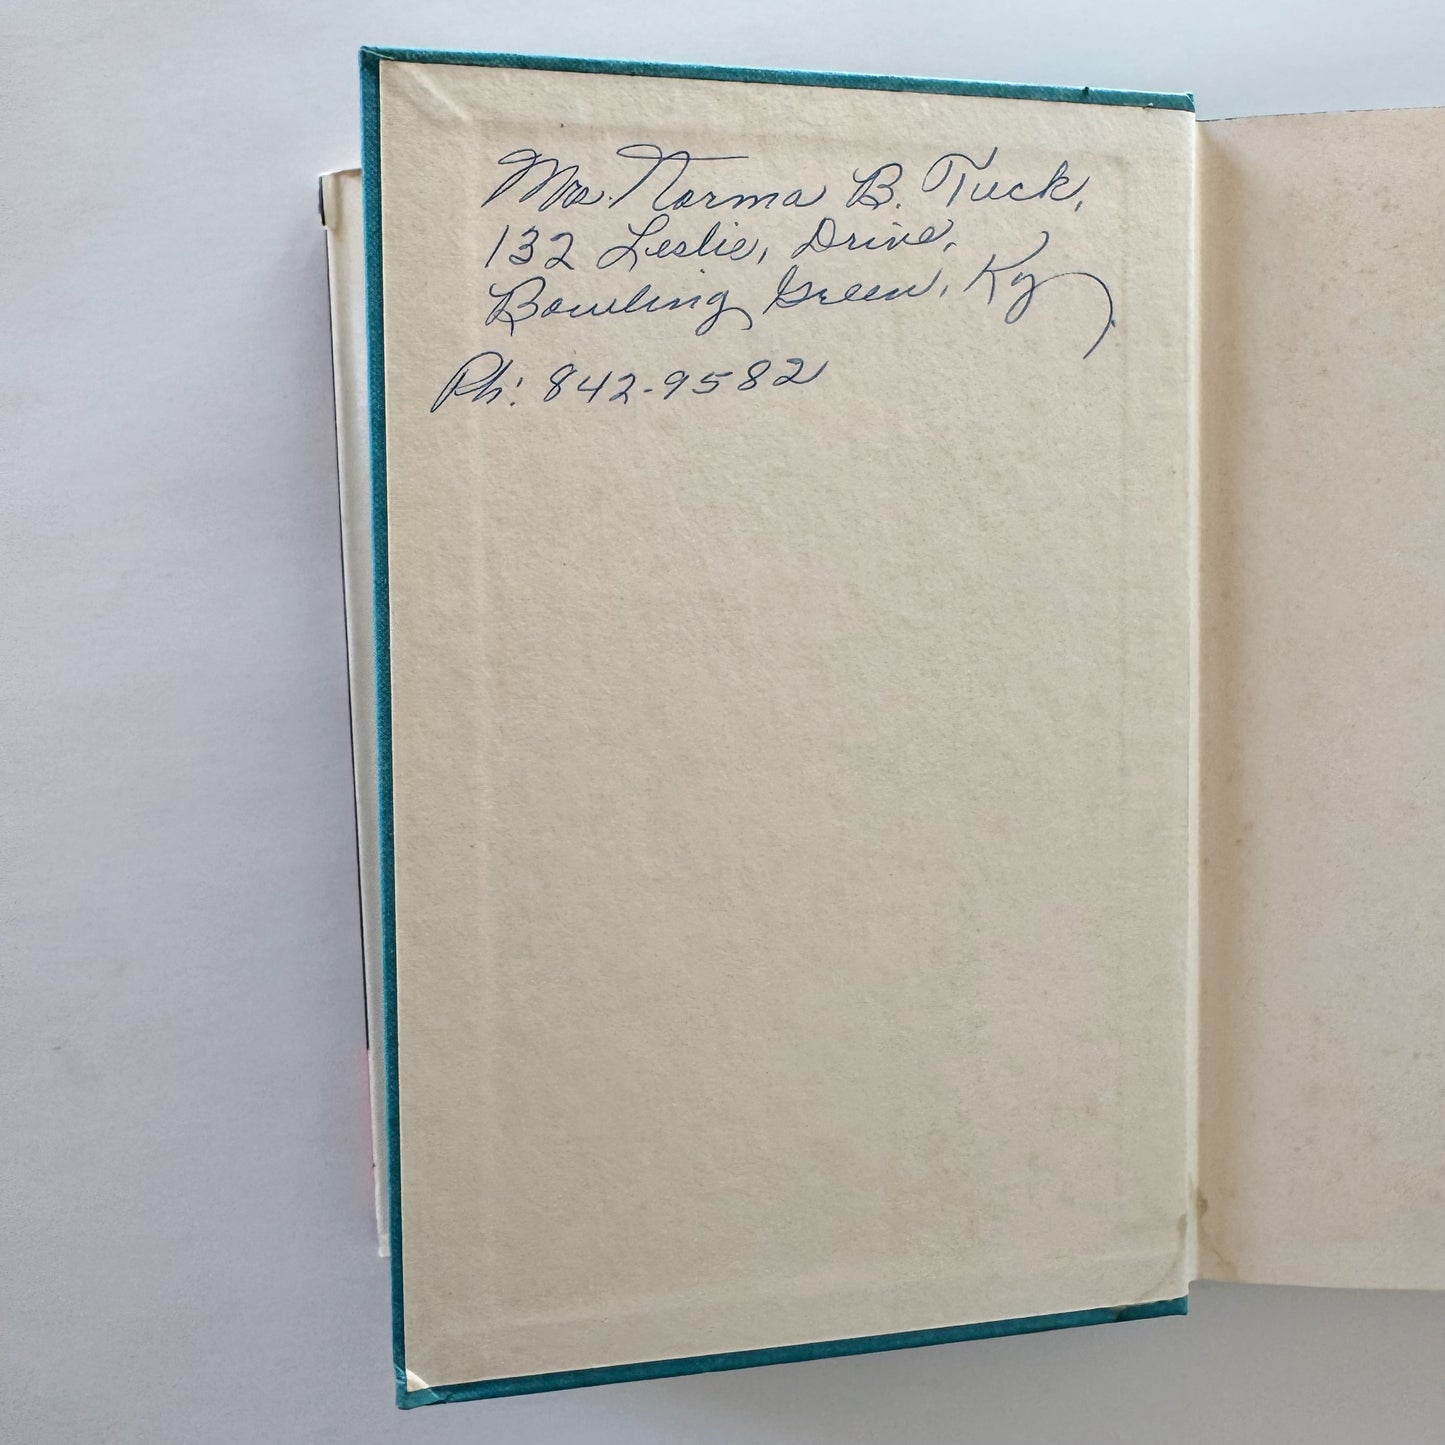 Mrs. Norma B. Tuck,
132 Leslie, Drive,
Bowling Green, Ky.
Ph: 842-9582